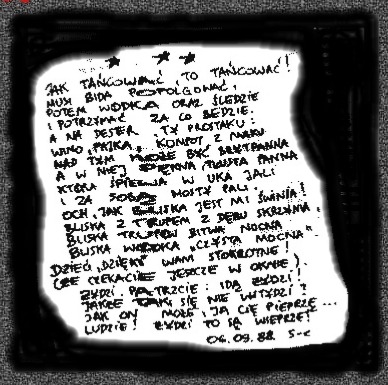 JAK TAŃCOWAĆ, TO TAŃCOWAĆ!
MUSI BIDA
POTEM WÓDKA ORAZ ŚLEDZIE
I POTRZYMAĆ ZA CO BĘDZIE.
A NA DESER, TY PROSTAKU:
WINO, FAJKA, KOMPOT Z MAKU
NAD TYM MOŻE BYĆ BRYTFANNA
A W NIEJ PIĘKNA TŁUSTA PANNA
KTÓRA ŚPIEWA W UKA JALI
I ZA SOBĄ MOSTY PALI.
OCH, JAK BLISKA JEST MI ŚWINIA!
BLISKA Z TRUPEM Z DĘBU SKRZYNIA,
BLISKA TRUPÓW BITWA NOCNA
BLISKA WÓDKA „CZYSTA MOCNA"
DZIECI, DZIĘKI WAM STOKROTNE!
(ŻE CZEKACIE JESZCZE W OKNIE).
ŻYDZI! PATRZCIE: IDĄ ŻYDZI!
TAKI SIĘ NIE WSTYDZI?
JAK ON MOŻE, JA CIĘ PIEPRZĘ...
LUDZIE! ŻYDZI TO SĄ WIEPRZE!
06.09.88. S-C